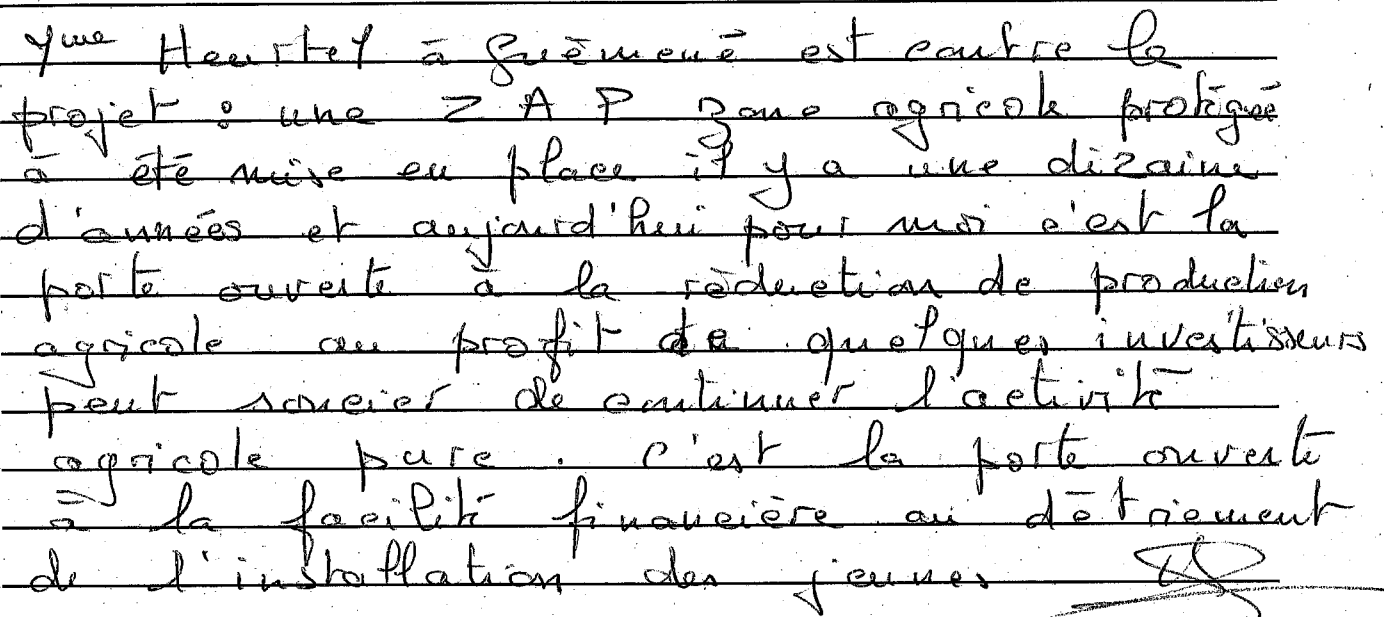 Mme Heurtel à Guémené est contre le
projet : une ZAP zone agricole protégée
à été mise en place il y a une dizaine
d'années et aujourd'hui pour moi c'est la
porte ouverte à la réduction de production
agricole au profit de quelques investisseurs
peut soucier de continuer l'activité
agricole pure. C'est la porte ouverte
à la facilité financière au détriement
de l'installation des jeunes